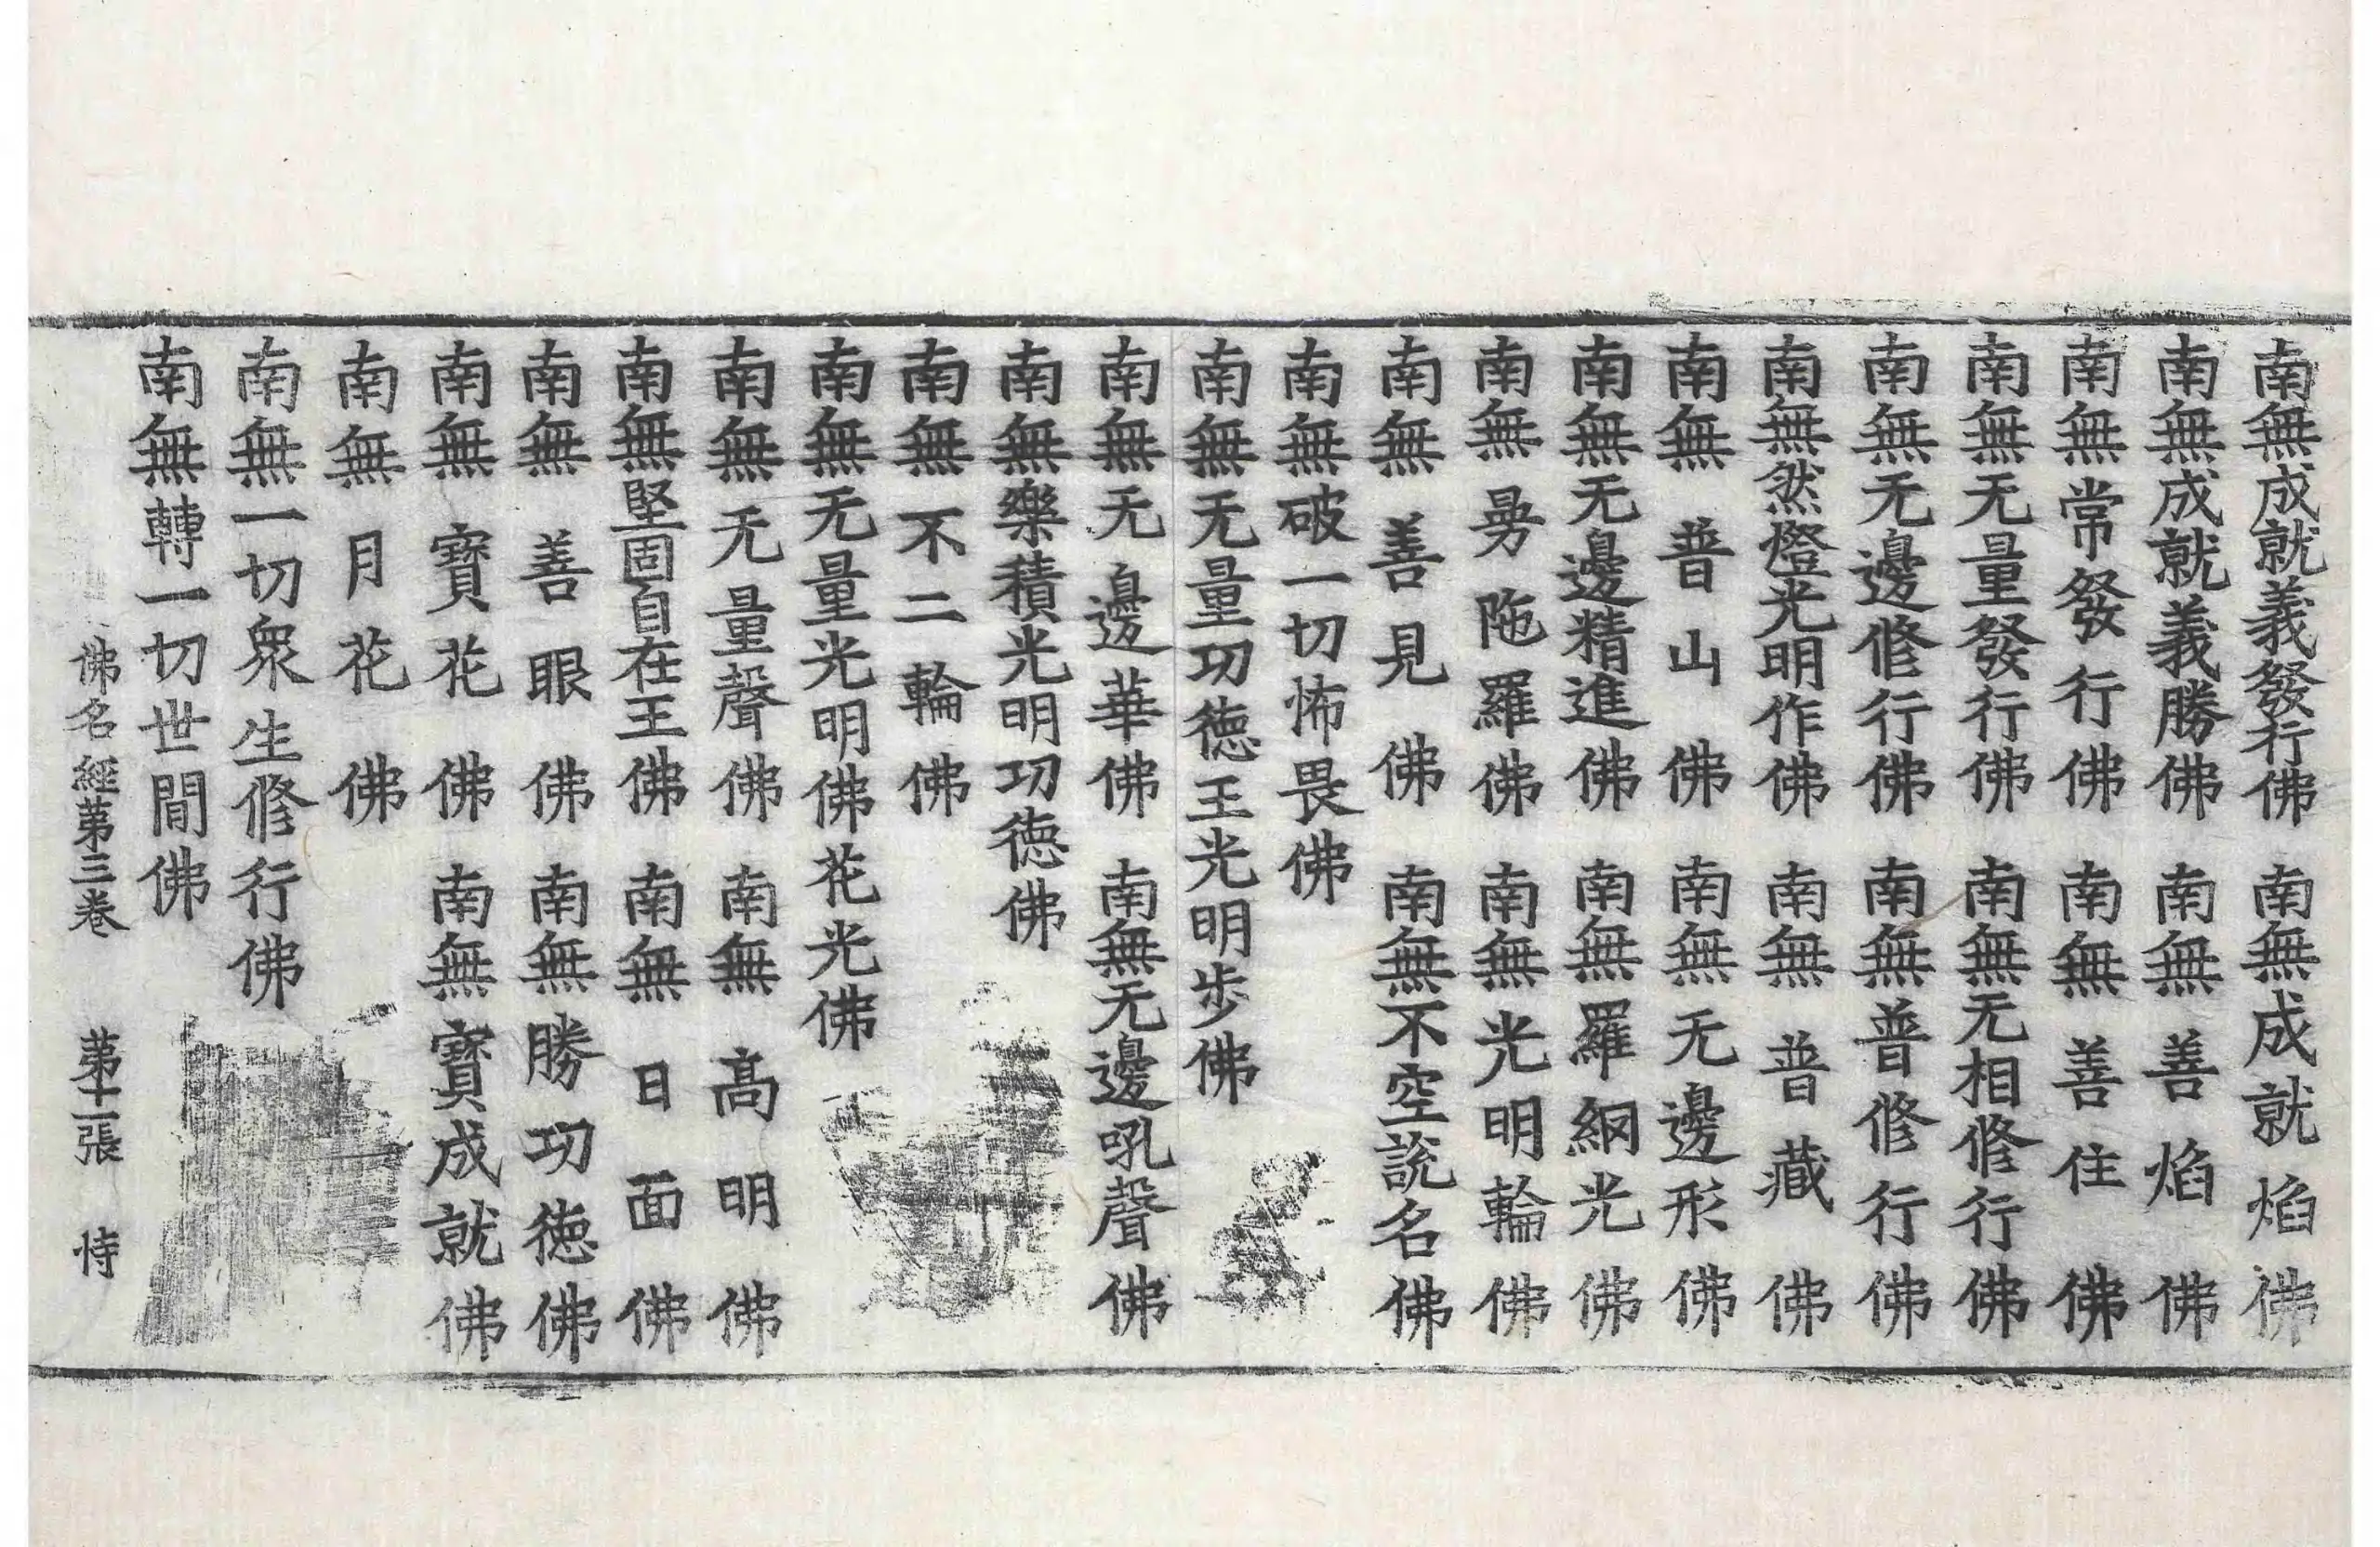 南無成就義發行佛 南無成就焰佛
南無成就義勝佛 南無善焰佛
南無常發行佛 南無善住佛
南無无量發行佛 南無无相修行佛
南無无邊修行佛 南無普修行佛
南無然燈光明作佛 南無普藏佛
南無普山佛 南無无邊形佛
南無无邊精進佛 南無羅網光佛
南無㝵陁羅佛 南無光明輪佛
南無善見佛 南無不空說名佛
南無破一切怖畏佛
南無无量功德王光明步佛
南無无邊華佛 南無无邊吼聲佛
南無樂積光明功德佛
南無不二輪佛
南無无量光明佛花光佛
南無无量聲佛 南無高明佛
南無堅固自在王佛 南無日面佛
南無善眼佛 南無勝功德佛
南無寶花佛 南無寶成就佛
南無月花佛
南無一切衆生修行佛
南無轉一切世間佛
佛名經第三卷 第十一張 恃